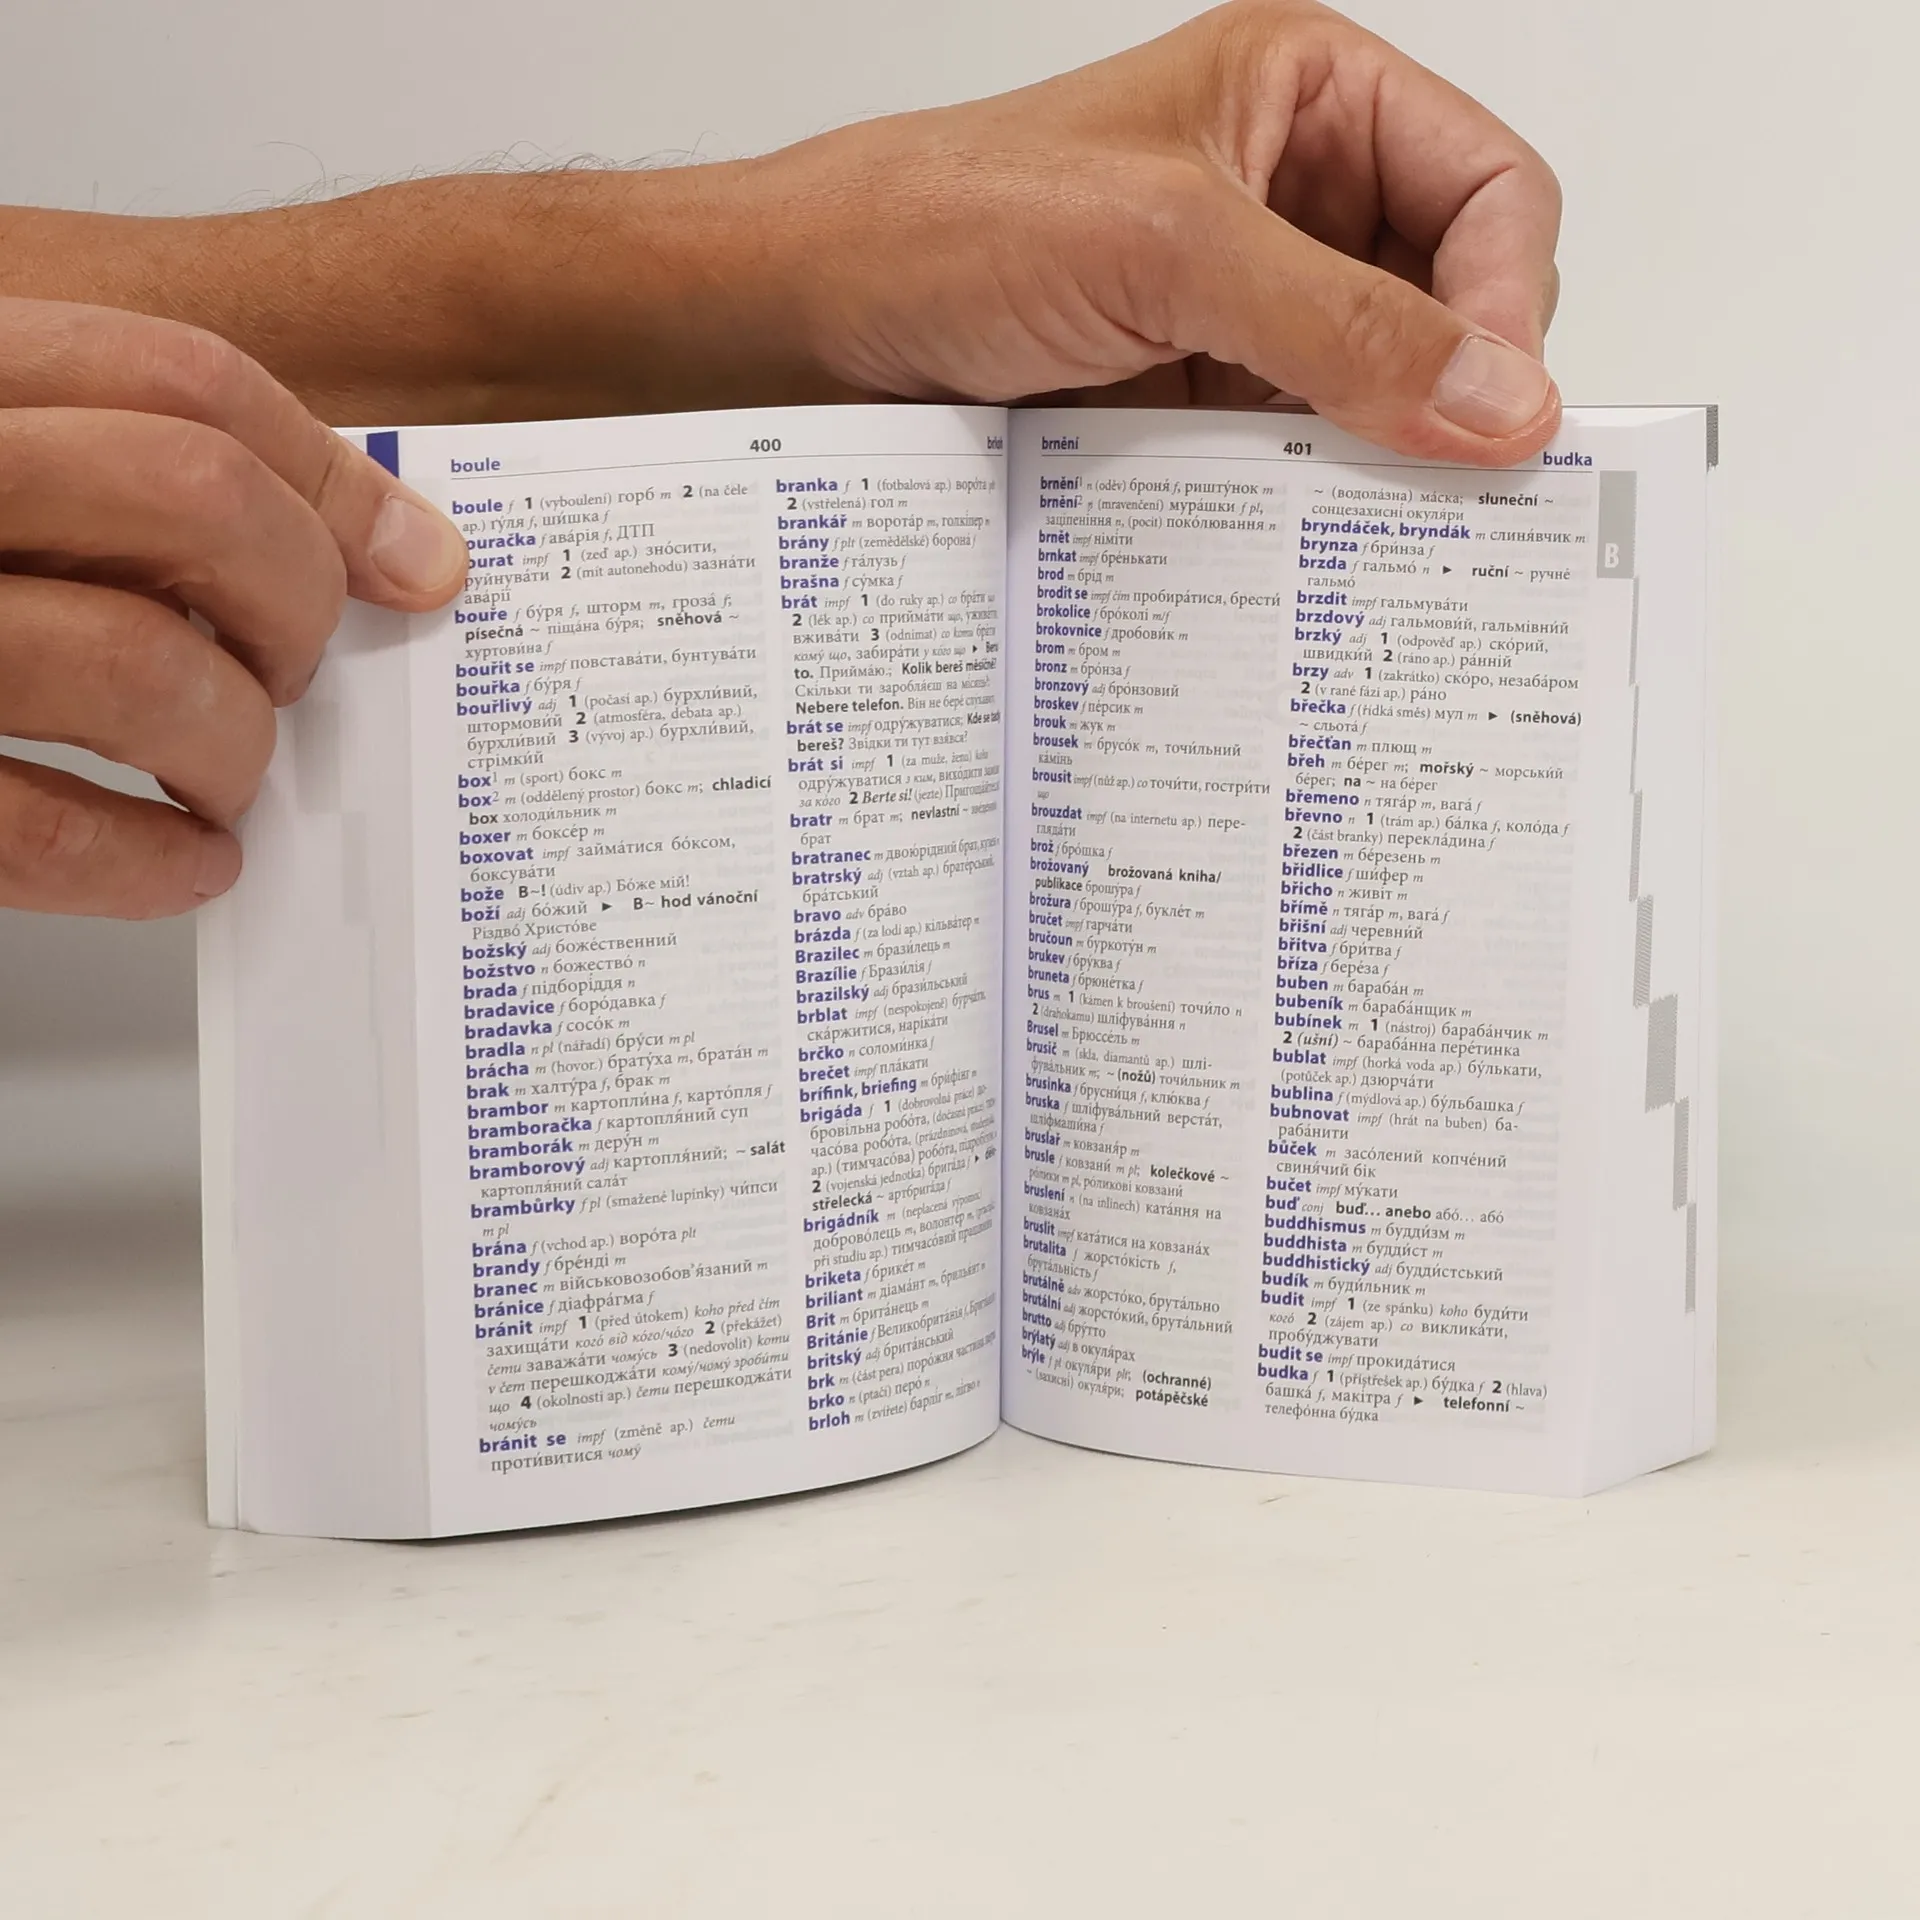 boule
400
boule f 1 (vyboulení) горб m 2 (na čele
ap.) ґу́ля f, ши́шка f
ouračka f ава́рія f, ДТП
ourat impf 1 (zeď ap.) зно́сити,
руйнува́ти 2 (mít autonehodu) зазна́ти
ава́рії
bouře f бу́ря f, шторм m, гроза́ f;
písečná ~ піща́на бу́ря; sněhová ~
хуртови́на f
bouřit se impf повстава́ти, бунтува́ти
bouřka f бу́ря f
bouřlivý adj 1 (počasí ap.) бурхли́вий,
штормови́й 2 (atmosféra, debata ap.)
бурхли́вий 3 (vývoj ap.) бурхли́вий,
стрімки́й
box¹ m (sport) бокс m
box² m (oddělený prostor) бокс m; chladicí
box холоди́льник m
boxer m боксе́р m
boxovat impf займа́тися бо́ксом,
боксува́ти
bože B~! (údiv ap.) Бо́же мій!
boží adj бо́жий ► B~ hod vánoční
Різдво́ Христо́ве
božský adj боже́ственний
božstvo n божество́ n
brada f підборі́ддя n
bradavice f борода́вка f
bradavka f сосо́к m
bradla n pl (nářadí) бру́си m pl
brácha m (hovor.) брату́ха m, брата́н m
brak m халту́ра f, брак m
brambor m картопли́на f, карто́пля f
bramboračka f картопля́ний суп
bramborák m деру́н m
bramborový adj картопля́ний; ~ salát
картопля́ний сала́т
brambůrky f pl (smažené lupínky) чі́пси
m pl
brána f (vchod ap.) воро́та plt
brandy f бре́нді m
branec m військовозобов'я́заний m
bránice f діафра́гма f
bránit impf 1 (před útokem) koho před čím
захища́ти кого́ від ко́го/чо́го 2 (překážet)
čemu заважа́ти чому́сь 3 (nedovolit) komu
v čem перешкоджа́ти кому́/чому́ зроби́ти
що 4 (okolnosti ap.) čemu перешкоджа́ти
чому́сь
bránit se impf (změně ap.) čemu
проти́витися чому́
branka f 1 (fotbalová ap.) воро́та
2 (vstřelená) гол m
brankář m ворота́р m, голкі́пер
brány f plt (zemědělské) борона́ f
branže f га́лузь f
brašna f су́мка f
brát impf 1 (do ruky ap.) co бра́ти що
2 (lék ap.) co прийма́ти що, ужива́ти,
вжива́ти 3 (odnímat) co komu бра́ти
кому́ що, забира́ти у ко́го що ► Beru
to. Прийма́ю.; Kolik bereš měsíčně?
Скі́льки ти заробля́єш на мі́сяць?
Nebere telefon. Він не бере́
brát se impf одру́жуватися; Kde se tady
bereš? Зві́дки ти тут взя́вся?
brát si impf 1 (za muže, ženu) koho
одру́жуватися з ким, вихо́дити за́між
за ко́го 2 Berte si! (jezte)
bratr m брат m; nevlastní ~
брат
bratranec m двою́рідний брат,
bratrský adj (vztah ap.) брате́рський,
бра́тський
bravo adv бра́во
brázda f (za lodí ap.) кільва́тер n
Brazilec m бразилець m
Brazílie f Брази́лія f
brazilský adj брази́льський
brblat impf (nespokojeně) бурча́ти,
ска́ржитися, наріка́ти
brčko n соломи́нка f
brečet impf пла́кати
brífink, briefing m бри́фінг
brigáda f 1 (dobrovolná práce) до-
брові́льна робо́та, (dočasná práce)
часо́ва робо́та, (prázdninová, studentská
ap.) (тимчасо́ва) робо́та,
2 (vojenská jednotka) брига́да f ►
střelecká ~ артбрига́да f
brigádník m (neplacená výpomoc)
доброво́лець m, волонте́р m,
při studiu ap.) тимчасо́вий працівни́к
briketa f брике́т m
briliant m діама́нт m, брилья́нт
Brit m брита́нець m
Británie f Великобрита́нія f,
britský adj брита́нський
brk m (část pera) поро́жня части́на
brko n (ptačí) перо́ n
brloh m (zvířete) барлі́г m, лі́гво
brnění
401
budka
brnění¹ n (oděv) броня́ f, ришту́нок m
brnění² n (mravenčení) мура́шки f pl,
заціпені́ння n, (pocit) поко́лювання n
brnět impf німі́ти
brnkat impf бре́нькати
brod m брід m
brodit se impf čím пробира́тися, брести́
brokolice f бро́колі m/f
brokovnice f дробови́к m
brom m бром m
bronz m бро́нза f
bronzový adj бро́нзовий
broskev f пе́рсик m
brouk m жук m
brousek m брусо́к m, точи́льний
ка́мінь
brousit impf (nůž ap.) co точи́ти, гостри́ти
що
brouzdat impf (na internetu ap.) пере-
гляда́ти
brož f бро́шка f
brožovaný brožovaná kniha/
publikace брошу́ра f
brožura f брошу́ра f, букле́т m
bručet impf гарча́ти
bručoun m буркоту́н m
brukev f бру́ква f
bruneta f брюне́тка f
brus m 1 (kámen k broušení) точи́ло n
2 (drahokamu) шліфува́ння n
Brusel m Брюссе́ль m
brusič m (skla, diamantů ap.) шлі-
фува́льник m; ~ (nožů) точи́льник m
brusinka f брусни́ця f, клю́ква f
bruska f шліфува́льний верста́т,
шліфмаши́на f
bruslař m ковзаня́р m
brusle f ковзани́ m pl; kolečkové ~
ро́лики m pl, ро́ликові ковзани́
bruslení n (na inlinech) ката́ння на
ковзана́х
bruslit impf ката́тися на ковзана́х
brutalita f жорсто́кість f,
брута́льність f
brutálně adv жорсто́ко, брута́льно
brutální adj жорсто́кий, брута́льний
brutto adj бру́тто
brýlatý adj в окуля́рах
brýle f pl окуля́ри plt; (ochranné)
~ (захисні́) окуля́ри; potápěčské
~ (водола́зна) ма́ска; sluneční ~
сонцезахисні́ окуля́ри
bryndáček, bryndák m слиня́вчик m
brynza f бри́нза f
brzda f гальмо́ n ► ruční ~ ручне́
гальмо́
brzdit impf гальмува́ти
brzdový adj гальмови́й, гальмівни́й
brzký adj 1 (odpověď ap.) ско́рий,
швидки́й 2 (ráno ap.) ра́нній
brzy adv 1 (zakrátko) ско́ро, незаба́ром
2 (v rané fázi ap.) ра́но
břečka f (řídká směs) мул m ► (sněhová)
~ сльота́ f
břečťan m плющ m
břeh m бе́рег m; mořský ~ морськи́й
бе́рег; na ~ на бе́рег
břemeno n тяга́р m, вага́ f
břevno n 1 (trám ap.) ба́лка f, коло́да f
2 (část branky) перекла́дина f
březen m бе́резень m
břidlice f ши́фер m
břicho n живі́т m
břímě n тяга́р m, вага́ f
břišní adj черевни́й
břitva f бри́тва f
bříza f бере́за f
buben m бараба́н m
bubeník m бараба́нщик m
bubínek m 1 (nástroj) бараба́нчик m
2 (ušní) ~ бараба́нна пере́тинка
bublat impf (horká voda ap.) бу́лькати,
(potůček ap.) дзюрча́ти
bublina f (mýdlová ap.) бу́льбашка f
bubnovat impf (hrát na buben) ба-
раба́нити
bůček m засо́лений копче́ний
свиня́чий бік
bučet impf му́кати
buď conj buď... anebo або́... або́
buddhismus m будди́зм m
buddhista m будди́ст m
buddhistický adj будди́стський
budík m буди́льник m
budit impf 1 (ze spánku) koho буди́ти
кого́ 2 (zájem ap.) co виклика́ти,
пробу́джувати
budit se impf прокида́тися
budka f 1 (přístřešek ap.) бу́дка f 2 (hlava)
башка́ f, макі́тра f ► telefonní ~
телефо́нна бу́дка
B